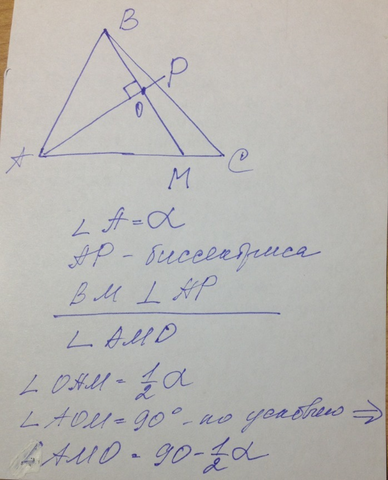 B
P
O
A
M
C
∠ A = α
AP - биссектриса
BM ⊥ AP
∠ AMO
∠ OAM = 1/2 α
∠ AOM = 90° - по условию ⇒
∠ AMO = 90 - 1/2 α